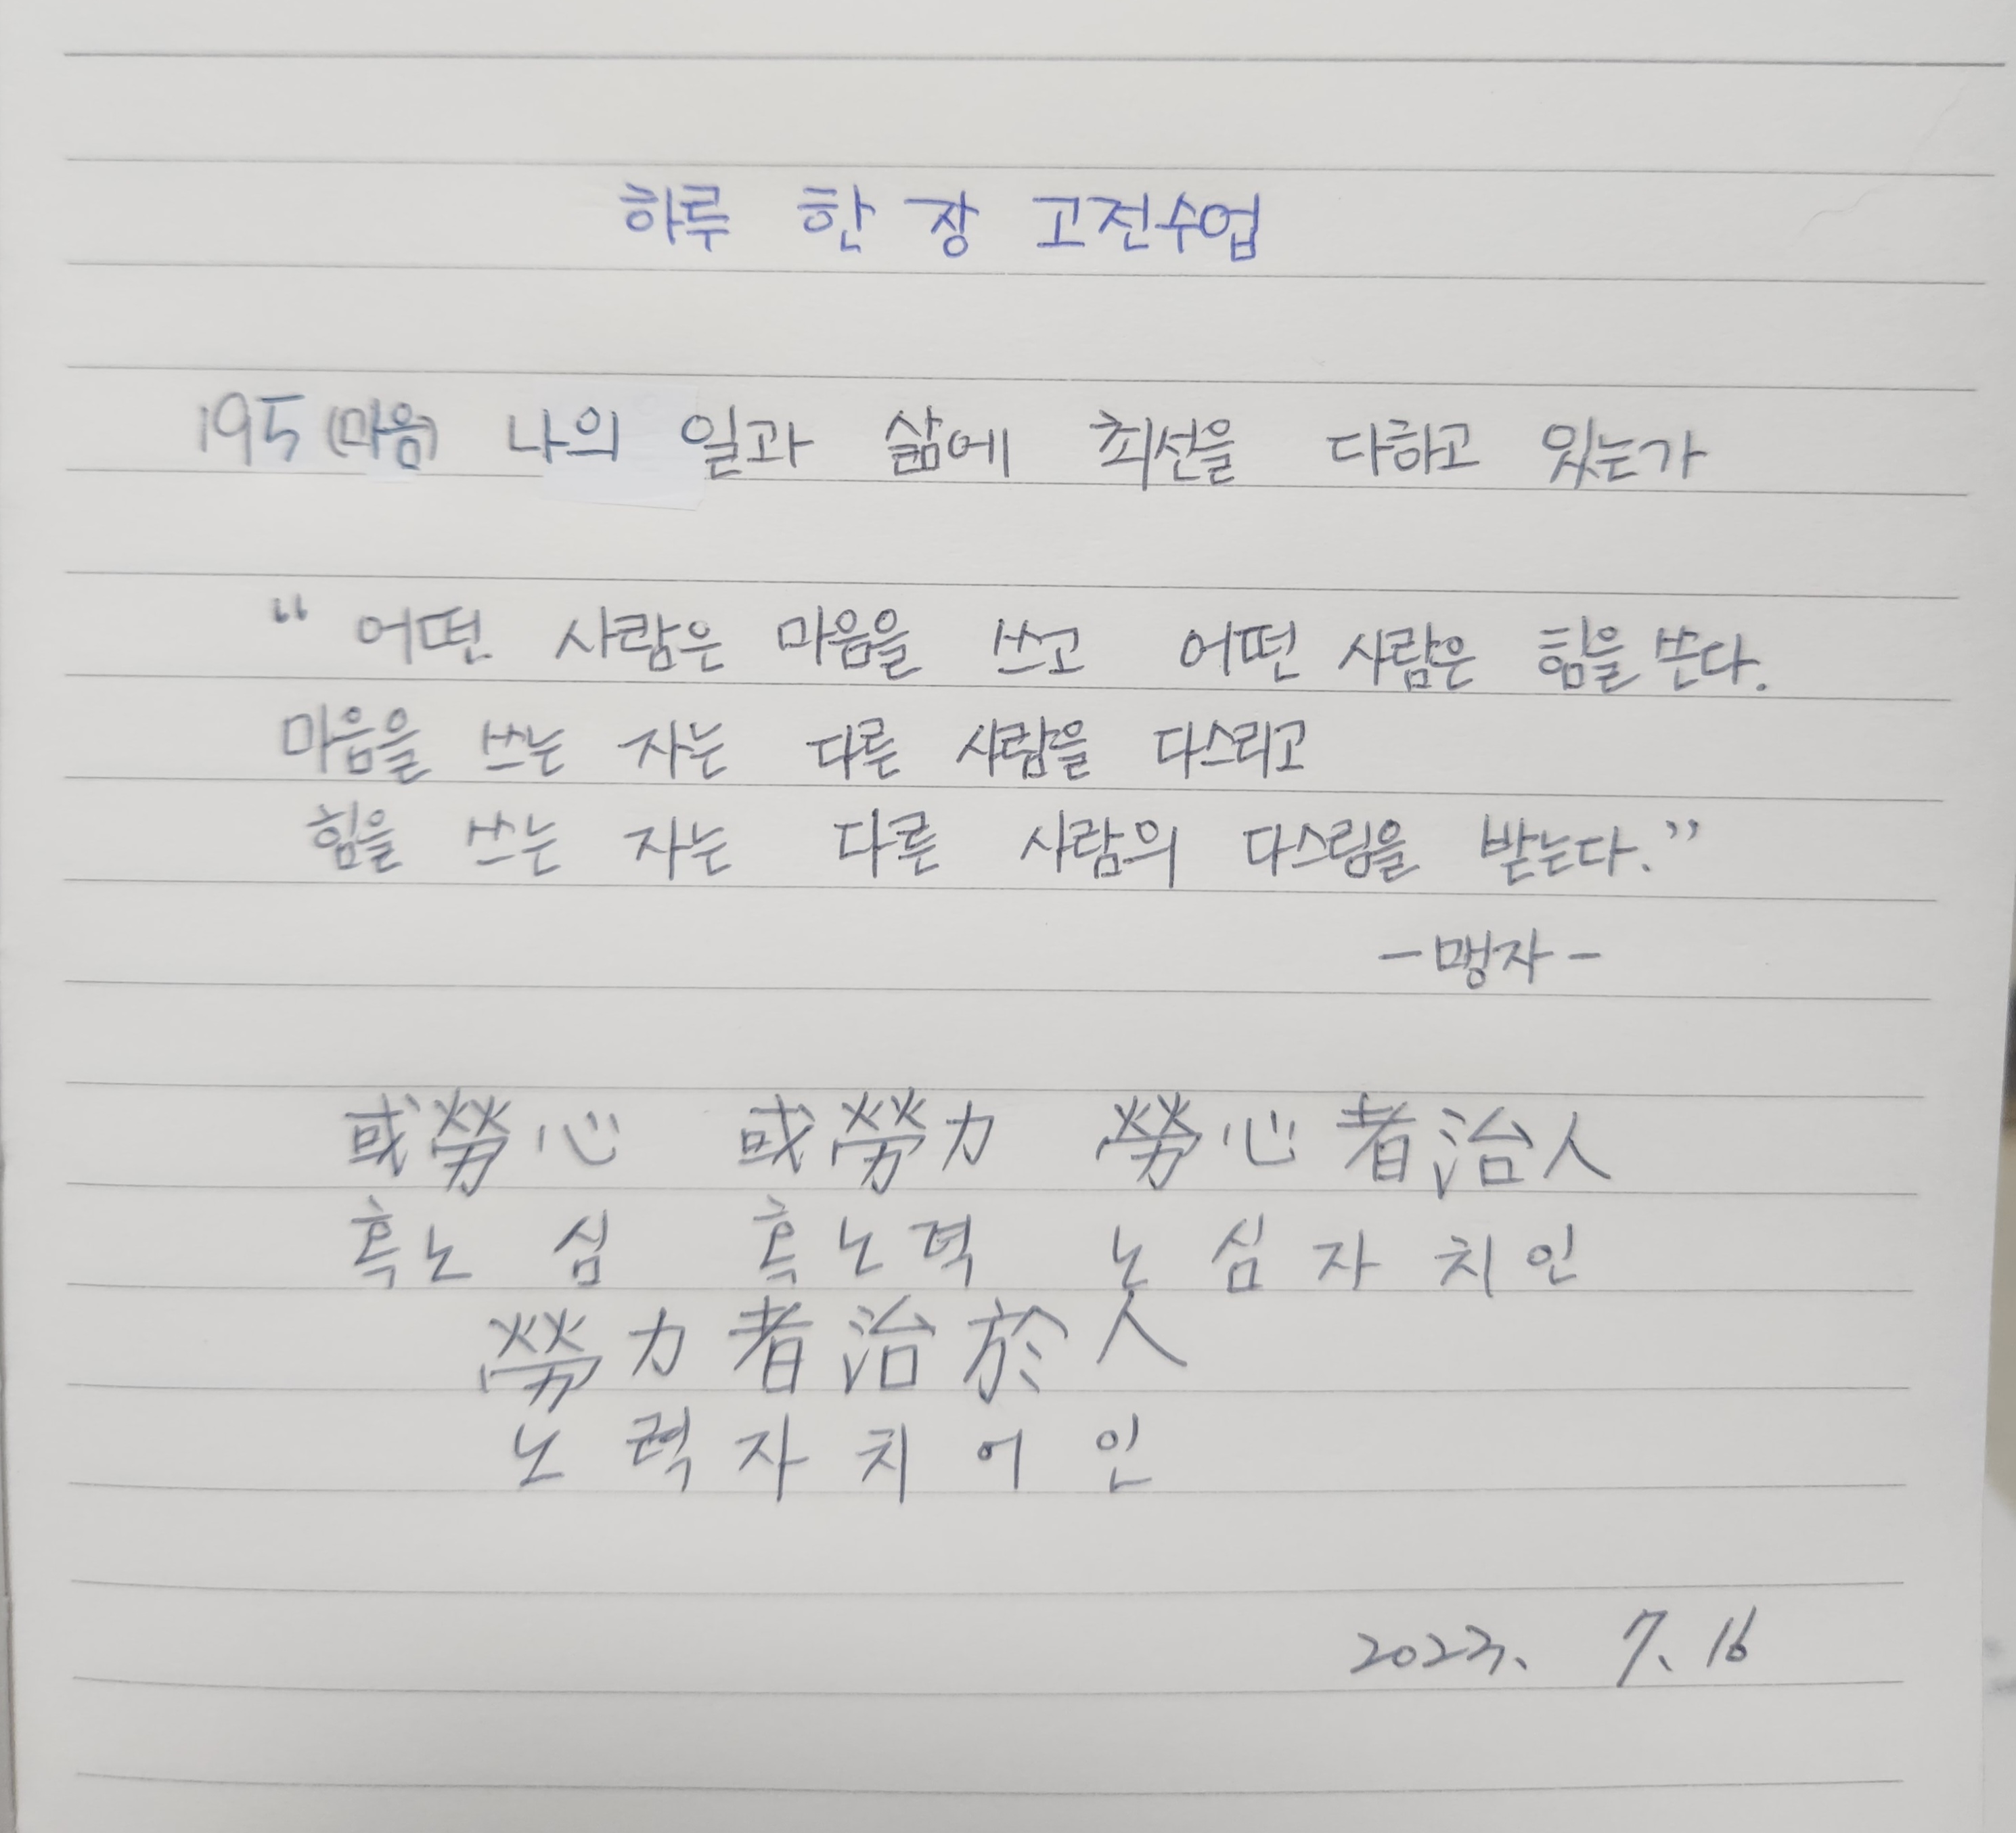 하루 한 장 고전수업
195 (마음) 나의 일과 삶에 최선을 다하고 있는가
“ 어떤 사람은 마음을 쓰고 어떤 사람은 힘을 쓴다.
마음을 쓰는 자는 다른 사람을 다스리고
힘을 쓰는 자는 다른 사람의 다스림을 받는다.”
- 맹자 -
或勞心 或勞力 勞心者治人
혹노 심 혹노력 노 심 자 치 인
勞力者治於人
노 력 자 치 어 인
2023. 7. 16